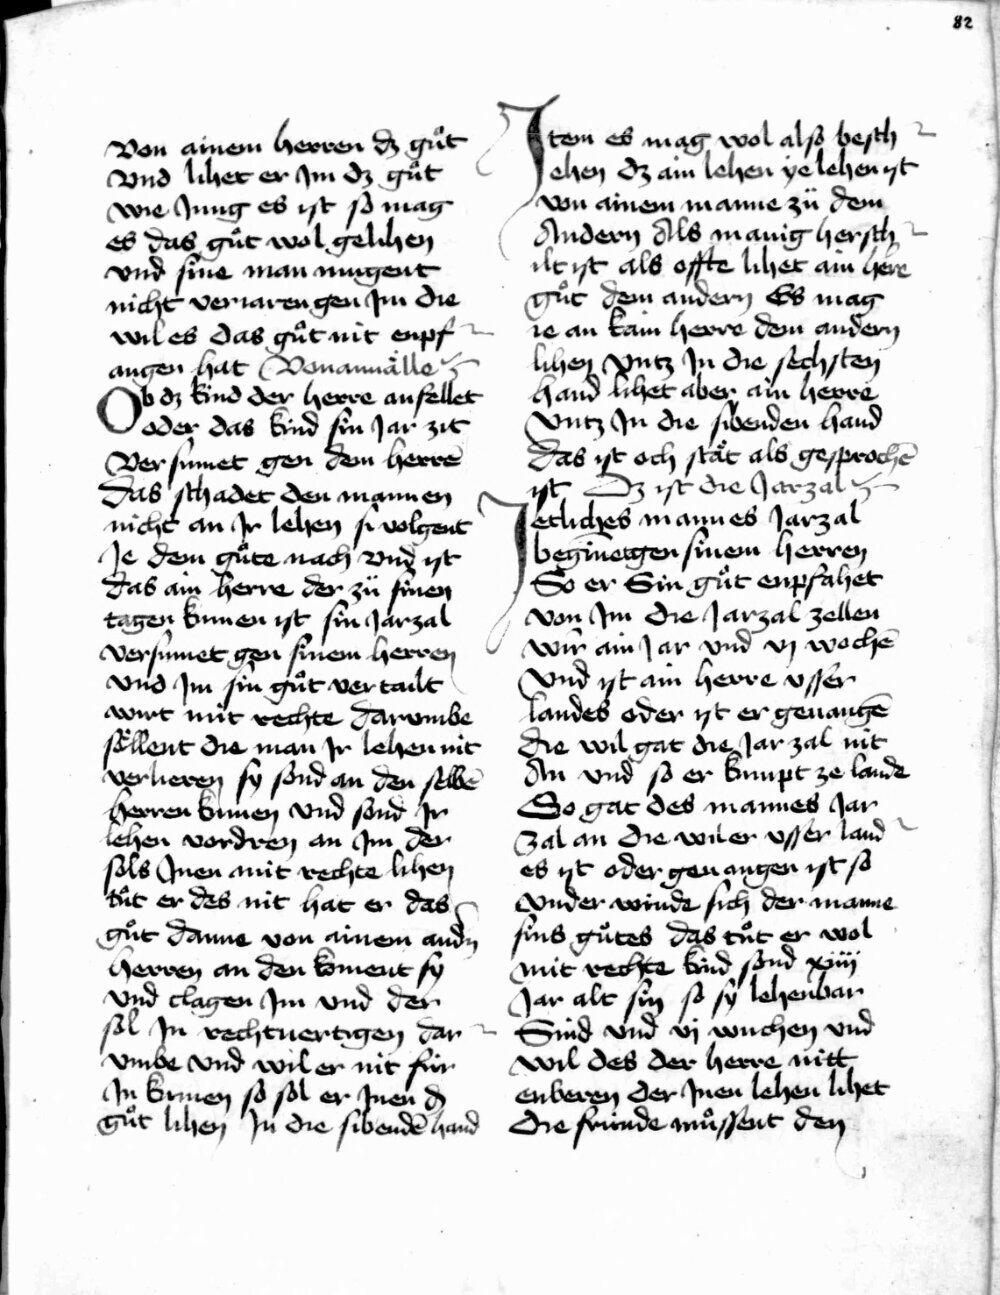 82
Von ainem herren dz guͦt
Vnd lihet er Jm dz guͦt
wie Jung es ist so mag
es das guͦt wol gelihen
vnd sine man mugent
nicht veriaren gen Jm die
wil es das guͦt nit enpf
angen hat Von anuälle
Ob dz kind der herre anfellet
oder das kind sin Jar zit
Versumet gen dem herrē
das schadet den mannen
nicht an Jr lehen si volgent
Je dem guͦte nach vnd ist
das ain herre der zü sinen
tagen kumen ist sin Jarzal
versumet gen sinem herren
vnd Jm sin guͦt vertailt
wirt mit rechte darumbe
söllent die man Jr lehen nit
verlieren sy sond an den selbē
herren kumen vnd sond Jr
lehen vordren an Jm der
sols Jnen mit rechte lihen
tuͦt er des nit hat er das
guͦt danne von ainem andn
herren an den koment sy
vnd clagen Jm vnd der
sol Jn rechtuertigen dar
vmbe vnd wil er nit für
Jn kumen so sol er Jnen dz
guͦt lihen Jn die sibendē hand
Jtem es mag wol also besch
ehen dz ain lehen ye lehen ist
von ainem manne zü dem
Andern Als manig hersch
ilt ist als offte lihet ain herre
guͦt dem andern Es mag
ie an kain herre dem andern
lihen vntz Jn die sechsten
hand lihet aber ain herre
vntz Jn die sibenden hand
das ist och stät als gesprochē
ist Dz ist die Jarzal
Jetliches mannes Jarzal
beginnet gen sinem herren
So er Sin guͦt enpfahet
von Jm die Jarzal zellen
wir ain Jar vnd vj wochē
Vnd ist ain herre vsser
landes oder ist er geuangē
die wil gat die Jar zal nit
An vnd so er kumpt ze lande
So gat des mannes Jar
zal an die wil er vsser land
es ist oder geuangen ist so
vnder winde sich der manne
sins guͦtes das tuͦt er wol
mit rechte kind sond xiiij
Jar alt sin so sy lehenbar
Sind vnd vj wuchen vnd
wil des der herre nitt
enberen der Jnen lehen lihet
die frunde muͦssent den